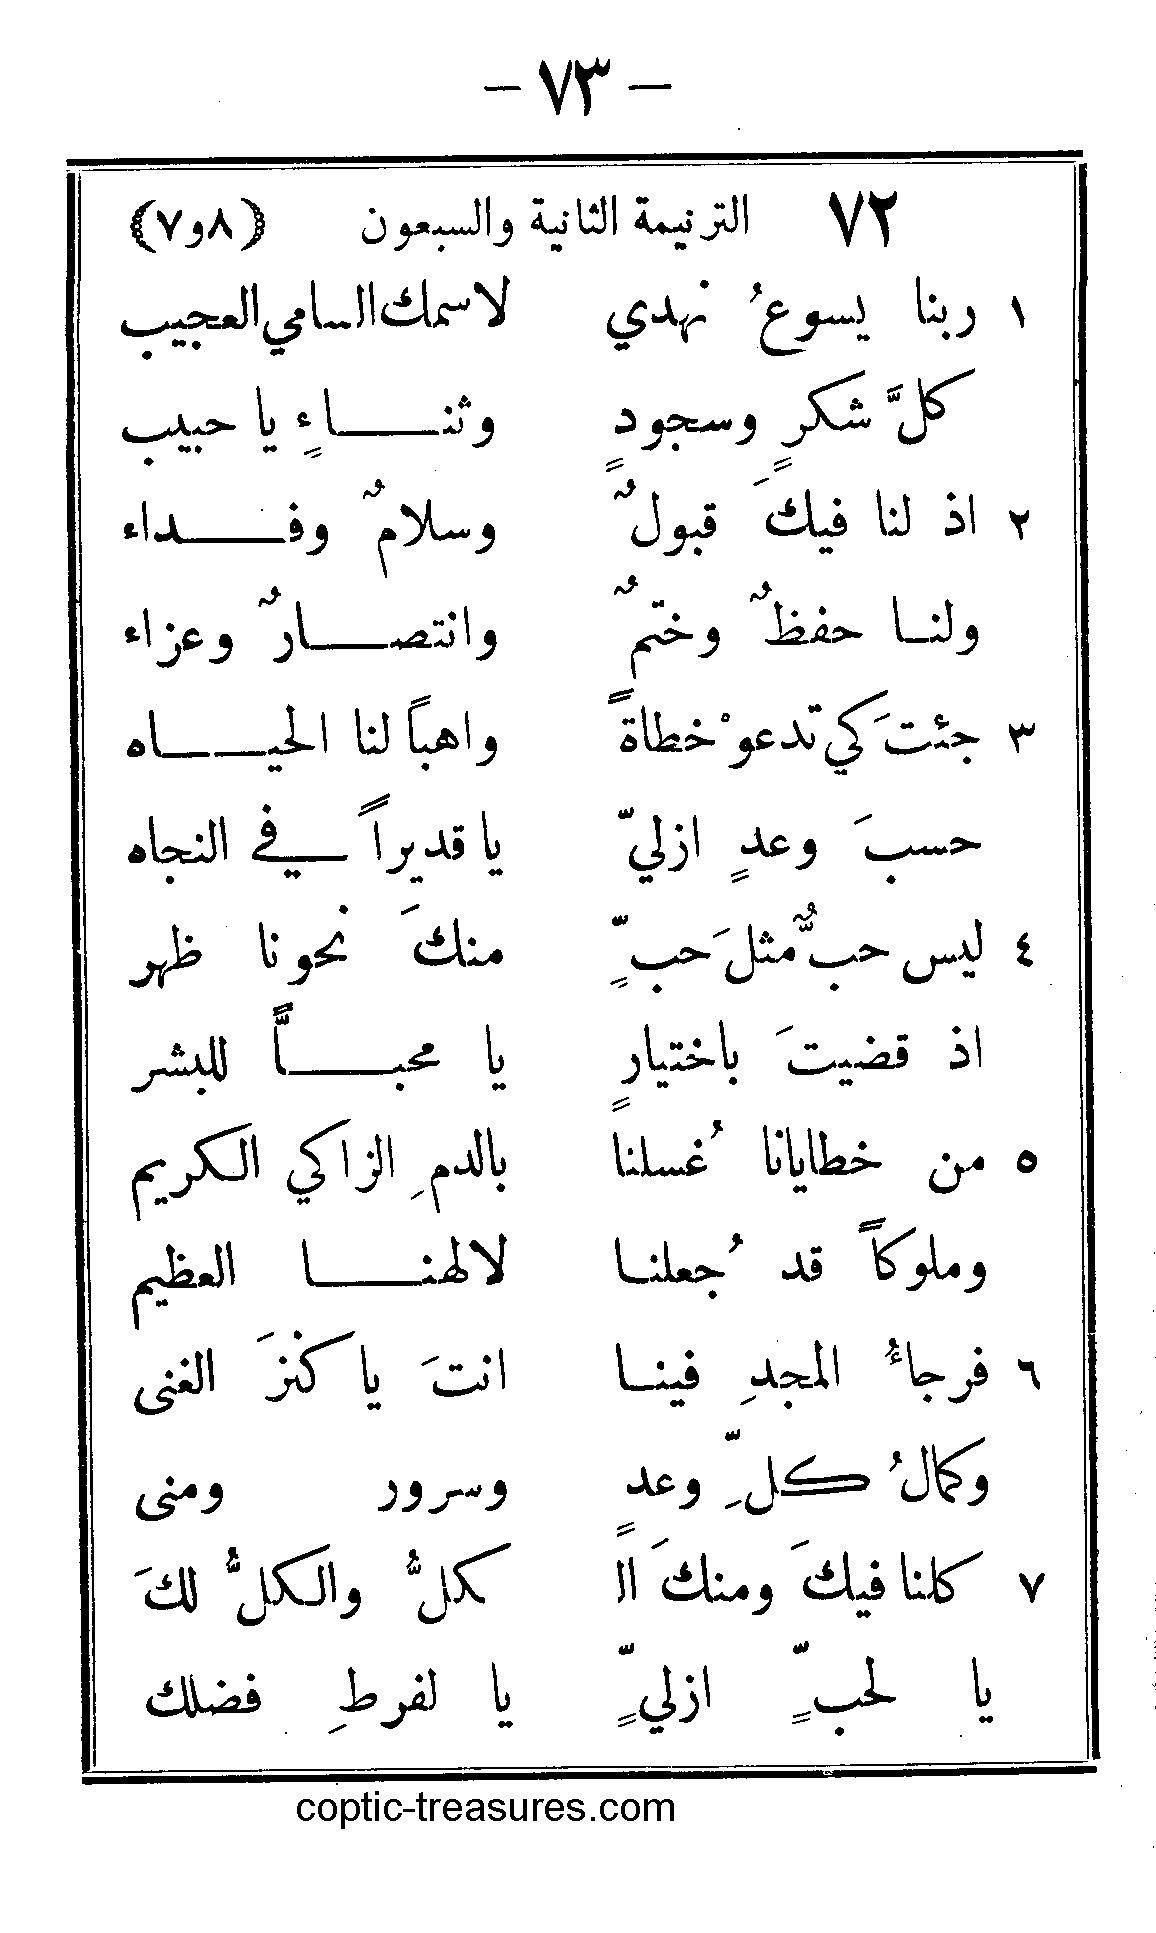 — ٧٣ —
٧٢ الترنيمة الثانية والسبعون (٨و٧)
١ ربنا يسوعُ نهدي لاسمك السامي العجيب
كلَّ شكرٍ وسجودٍ وثنـــاءٍ يا حبيب
٢ اذ لنا فيكَ قبولٌ وسلامٌ وفـــداء
ولنـا حفظٌ وختمٌ وانتصـــارٌ وعزاء
٣ جئتَ كي تدعوْ خطاةً واهباً لنا الحيـــاه
حسبَ وعدٍ ازليّ يا قديراً في النجاه
٤ ليس حبٌّ مثلَ حبٍّ منكَ نحونا ظهر
اذ قضيتَ باختيارٍ يا محبـــاًّ للبشر
٥ من خطايانا غُسلنا بالدمِ الزاكي الكريم
وملوكاً قد جُعلنـا لالهنـــا العظيم
٦ فرجاءُ المجدِ فينـا انتَ يا كنْزَ الغنى
وكمالُ كلِّ وعدٍ وسرور ومنى
٧ كلنا فيكَ ومنكَ الـ كلُّ والكلُّ لكَ
يا لحبٍّ ازليٍّ يا لفرطِ فضلك
coptic-treasures.com